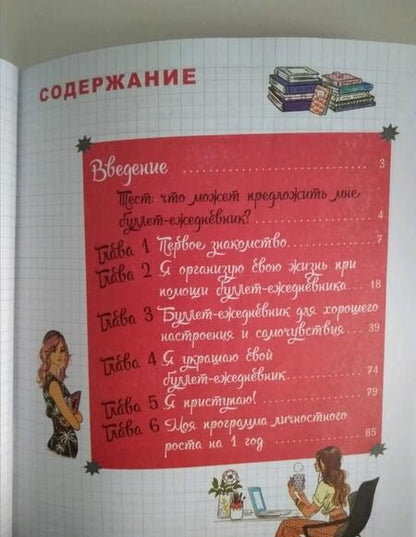 СОДЕРЖАНИЕ
Введение ................ 3
Тест: что может предложить мне
буллет-ежедневник? ........ 4
Глава 1 Первое знакомство.......... 7
Глава 2 Я организую свою жизнь при
помощи буллет-ежедневника... 18
Глава 3 Буллет-ежедневник для хорошего
настроения и самочувствия... 39
Глава 4 Я украшаю свой
буллет-ежедневник........... 74
Глава 5 Я приступаю! ............... 79
Глава 6 Моя программа личностного
роста на 1 год ............. 85